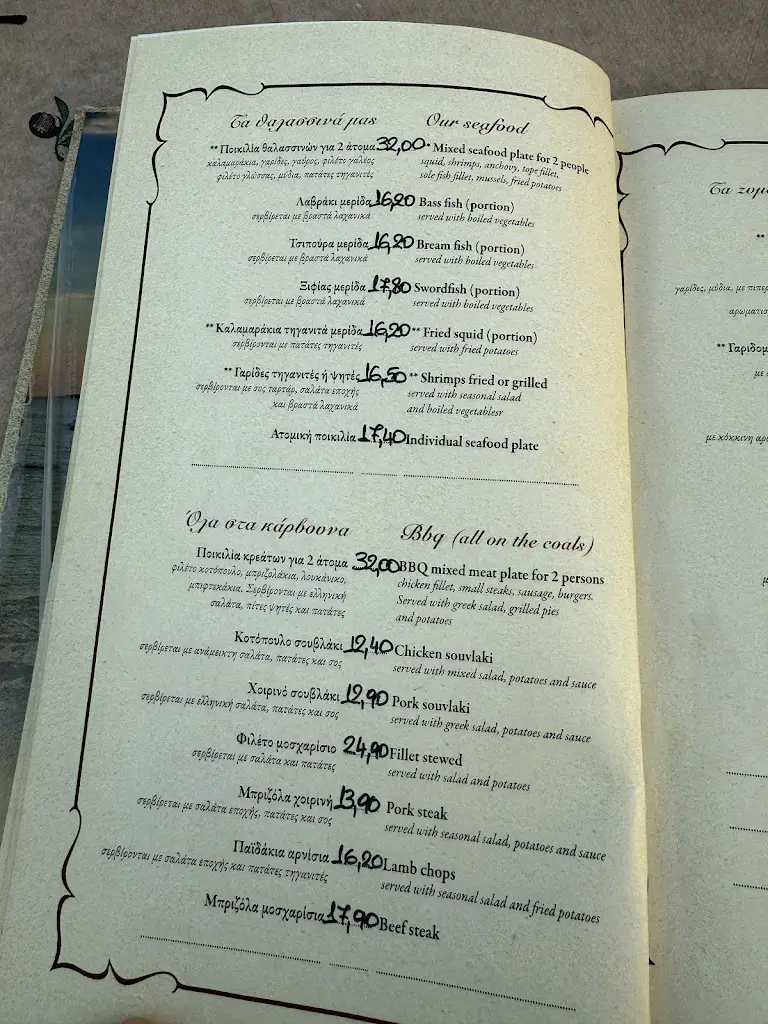 Τα θαλασσινά μας Our seafood
** Ποικιλία θαλασσινών για 2 άτομα 32,00 * Mixed seafood plate for 2 people
καλαμαράκια, γαρίδες, γαύρος, φιλέτο γαλέος squid, shrimps, anchovy, tope fillet,
φιλέτο γλώσσας, μύδια, πατάτες τηγανιτές sole fish fillet, mussels, fried potatoes
Λαβράκι μερίδα 16,20 Bass fish (portion)
σερβίρεται με βραστά λαχανικά served with boiled vegetables
Τσιπούρα μερίδα 16,20 Bream fish (portion)
σερβίρεται με βραστά λαχανικά served with boiled vegetables
Ξιφίας μερίδα 17,80 Swordfish (portion)
σερβίρεται με βραστά λαχανικά served with boiled vegetables
** Καλαμαράκια τηγανιτά μερίδα 16,20 ** Fried squid (portion)
σερβίρονται με πατάτες τηγανιτές served with fried potatoes
** Γαρίδες τηγανιτές ή ψητές 16,50 ** Shrimps fried or grilled
σερβίρονται με σος ταρτάρ, σαλάτα εποχής served with seasonal salad
και βραστά λαχανικά and boiled vegetablesr
Ατομική ποικιλία 17,40 Individual seafood plate
Όλα στα κάρβουνα Bbq (all on the coals)
Ποικιλία κρεάτων για 2 άτομα 32,00 BBQ mixed meat plate for 2 persons
φιλέτο κοτόπουλο, μπριζολάκια, λουκάνικο, chicken fillet, small steaks, sausage, burgers.
μπιφτεκάκια. Σερβίρονται με ελληνική Served with greek salad, grilled pies
σαλάτα, πίτες ψητές και πατάτες and potatoes
Κοτόπουλο σουβλάκι 12,40 Chicken souvlaki
σερβίρεται με ανάμεικτη σαλάτα, πατάτες και σος served with mixed salad, potatoes and sauce
Χοιρινό σουβλάκι 12,90 Pork souvlaki
σερβίρεται με ελληνική σαλάτα, πατάτες και σος served with greek salad, potatoes and sauce
Φιλέτο μοσχαρίσιο 24,90 Fillet stewed
σερβίρεται με σαλάτα και πατάτες served with salad and potatoes
Μπριζόλα χοιρινή 13,90 Pork steak
σερβίρεται με σαλάτα εποχής, πατάτες και σος served with seasonal salad, potatoes and sauce
Παϊδάκια αρνίσια 16,20 Lamb chops
σερβίρονται με σαλάτα εποχής και πατάτες τηγανιτές served with seasonal salad and fried potatoes
Μπριζόλα μοσχαρίσια 17,90 Beef steak
Τα
**
γαρίδες, μύδια, με
**
με
με κόκκινη